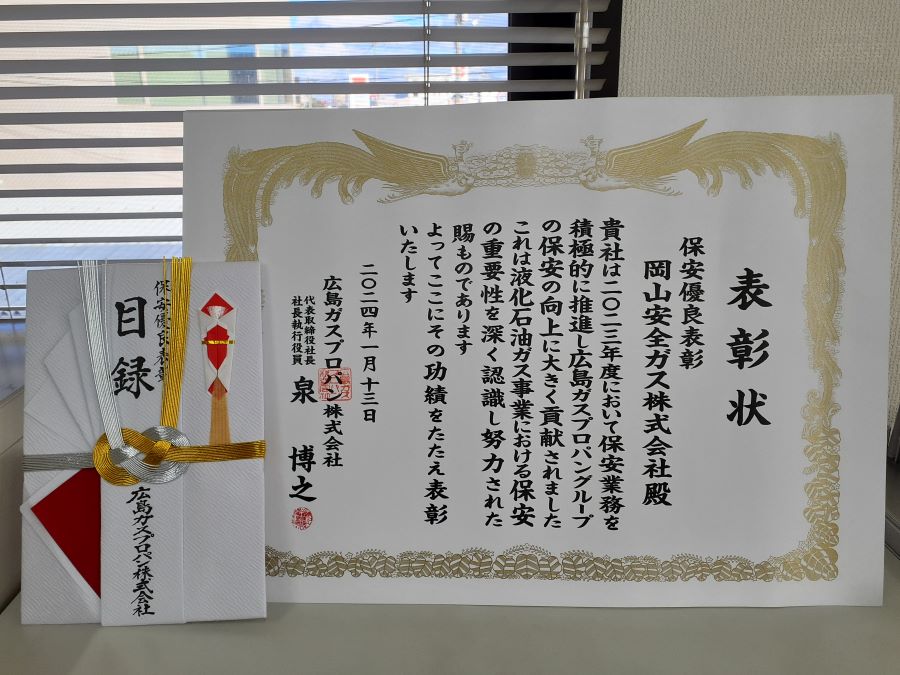 表彰状
保安優良表彰
岡山安全ガス株式会社殿
貴社は二〇二三年度において保安業務を
積極的に推進し広島ガスプロパングループ
の保安の向上に大きく貢献されました
これは液化石油ガス事業における保安
の重要性を深く認識し努力された
賜ものであります
よってここにその功績をたたえ表彰
いたします
二〇二四年一月十三日
広島ガスプロパン株式会社
代表取締役社長
社長執行役員
泉 博之
保安優良表彰
目録
広島ガスプロパン株式会社